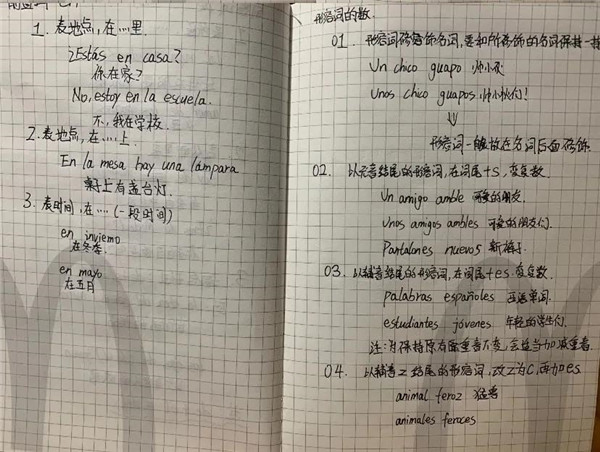 1. 表地点，在……里
¿Estás en casa?
你在家？
No, estoy en la escuela.
不，我在学校.
2. 表地点，在……上
En la mesa hay una lámpara
桌上有盏台灯.
3. 表时间，在……(一段时间)
en inviemo
在冬季.
en mayo
在五月
形容词的数.
01. 形容词修饰名词，要和所修饰的名词保持一致
Un chico guapo 帅小伙
Unos chico guapos 帅小伙们!
⇓
形容词一般放在名词后面修饰.
02. 以元音结尾的形容词，在词尾+s，变复数.
Un amigo amble 可爱的朋友.
Unos amigos ambles 可爱的朋友们.
Pantalones nuevos 新裤子.
03. 以辅音结尾的形容词，在词尾+es. 变复数.
palabras españoles 西语单词.
estudiantes jóvenes 年轻的学生们.
注：为保持原有的重音不变，会适当加减重音.
04. 以辅音z结尾的形容词，改z为c，再加es.
animal feroz 猛兽
animales feroces